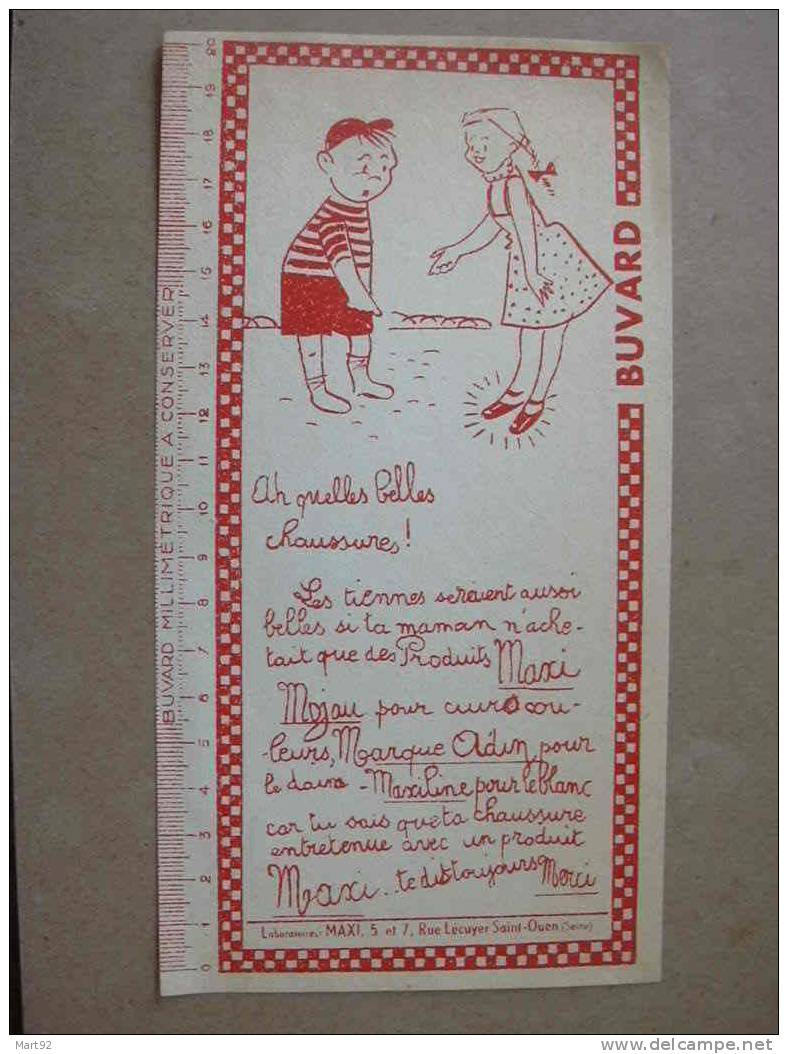 BUVARD MILLIMÉTRIQUE A CONSERVER
0 1 2 3 4 5 6 7 8 9 10 11 12 13 14 15 16 17 18 19 20
BUVARD
Ah quelles belles
chaussures!
Les tiennes seraient aussi
belles si ta maman n'ache-
tait que des Produits Maxi
Mojau pour cuirs cou-
leurs, Marque Adin pour
le daim - Maxiline pour le blanc
car tu sais que ta chaussure
entretenue avec un produit
Maxi.. te dit toujours Merci
Laboratoires MAXI, 5 et 7, Rue Lécuyer Saint-Ouen (Seine)
Mart92
delcampe.net